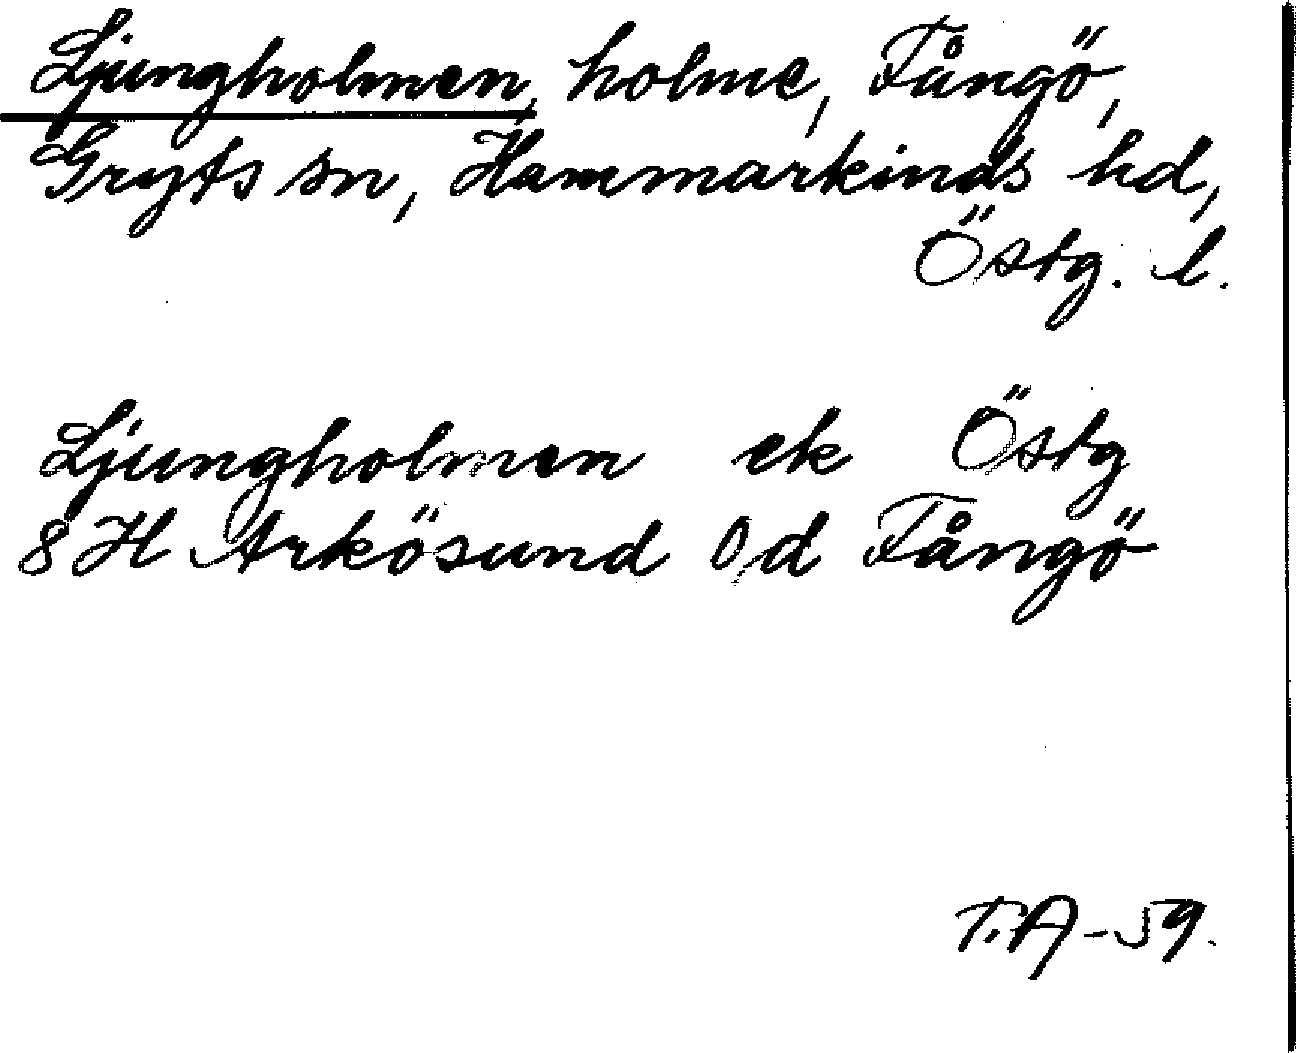 Ljungholmen, holme, Fångö,
Gryts sn, Hammarkinds hd,
Östg. l.
Ljungholmen ek Östg
8 H Arkösund 0,d Fångö
T.A-59.